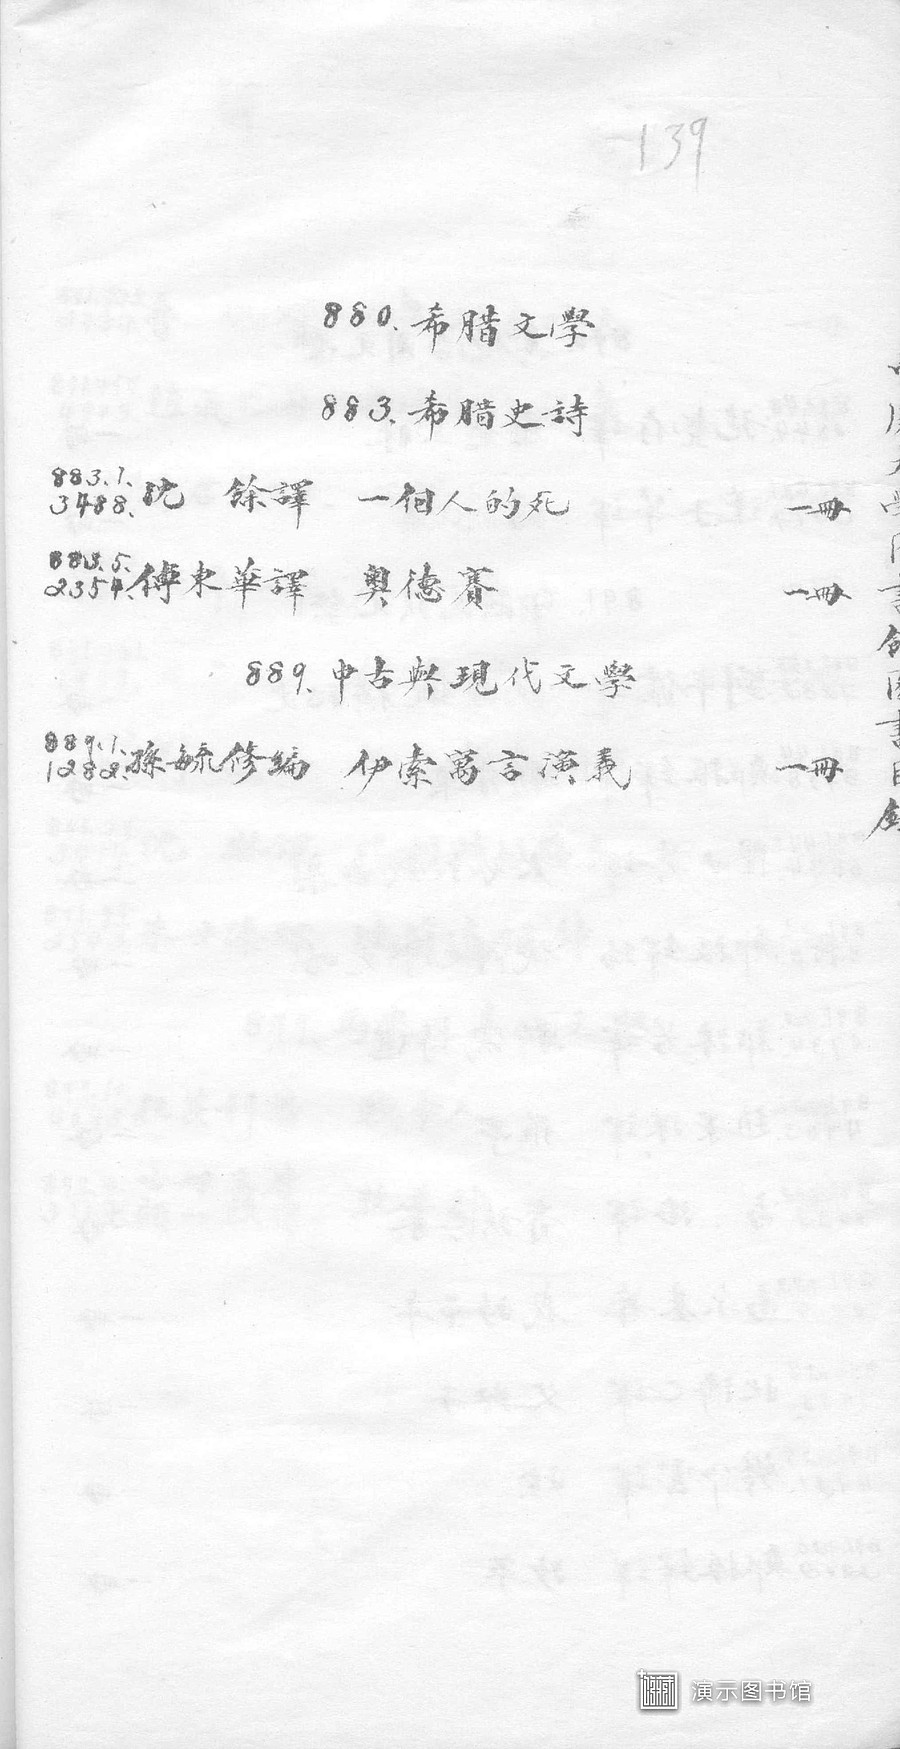 139
880.希腊文學
883.希腊史詩
883.1.
3488. 沈 餘譯 一個人的死 一冊
883.5.
2354. 傅東華譯 奧德賽 一冊
889.中古與現代文學
889.1.
1282. 孫毓修編 伊索寓言演義 一冊
大學图書館图書目錄
演示图书馆